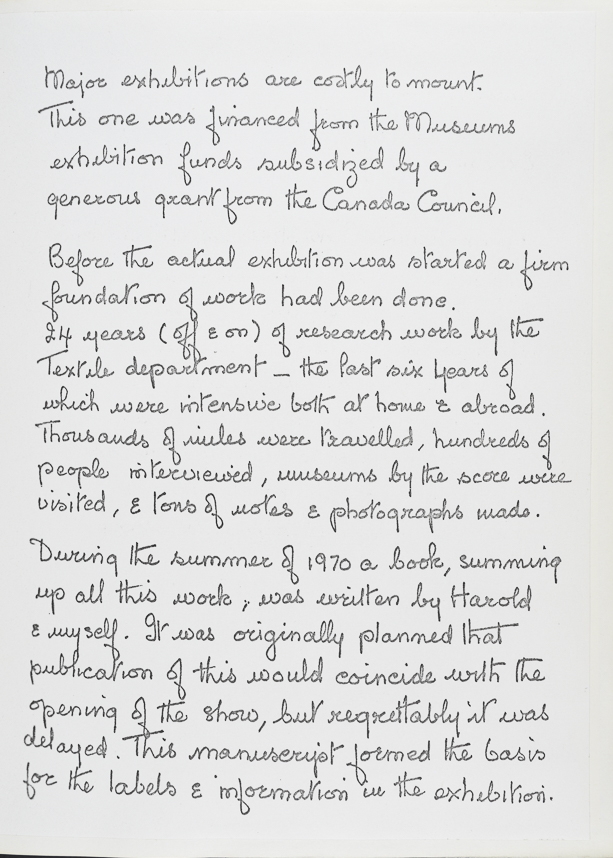 Major exhibitions are costly to mount.
This one was financed from the Museums
exhibition funds subsidized by a
generous grant from the Canada Council.
Before the actual exhibition was started a firm
foundation of work had been done.
24 years (off & on) of research work by the
Textile department – the last six years of
which were intensive both at home & abroad.
Thousands of miles were travelled, hundreds of
people interviewed, museums by the score were
visited, & tons of notes & photographs made.
During the summer of 1970 a book, summing
up all this work, was written by Harold
& myself. It was originally planned that
publication of this would coincide with the
opening of the show, but regrettably it was
delayed. This manuscript formed the basis
for the labels & information in the exhibition.